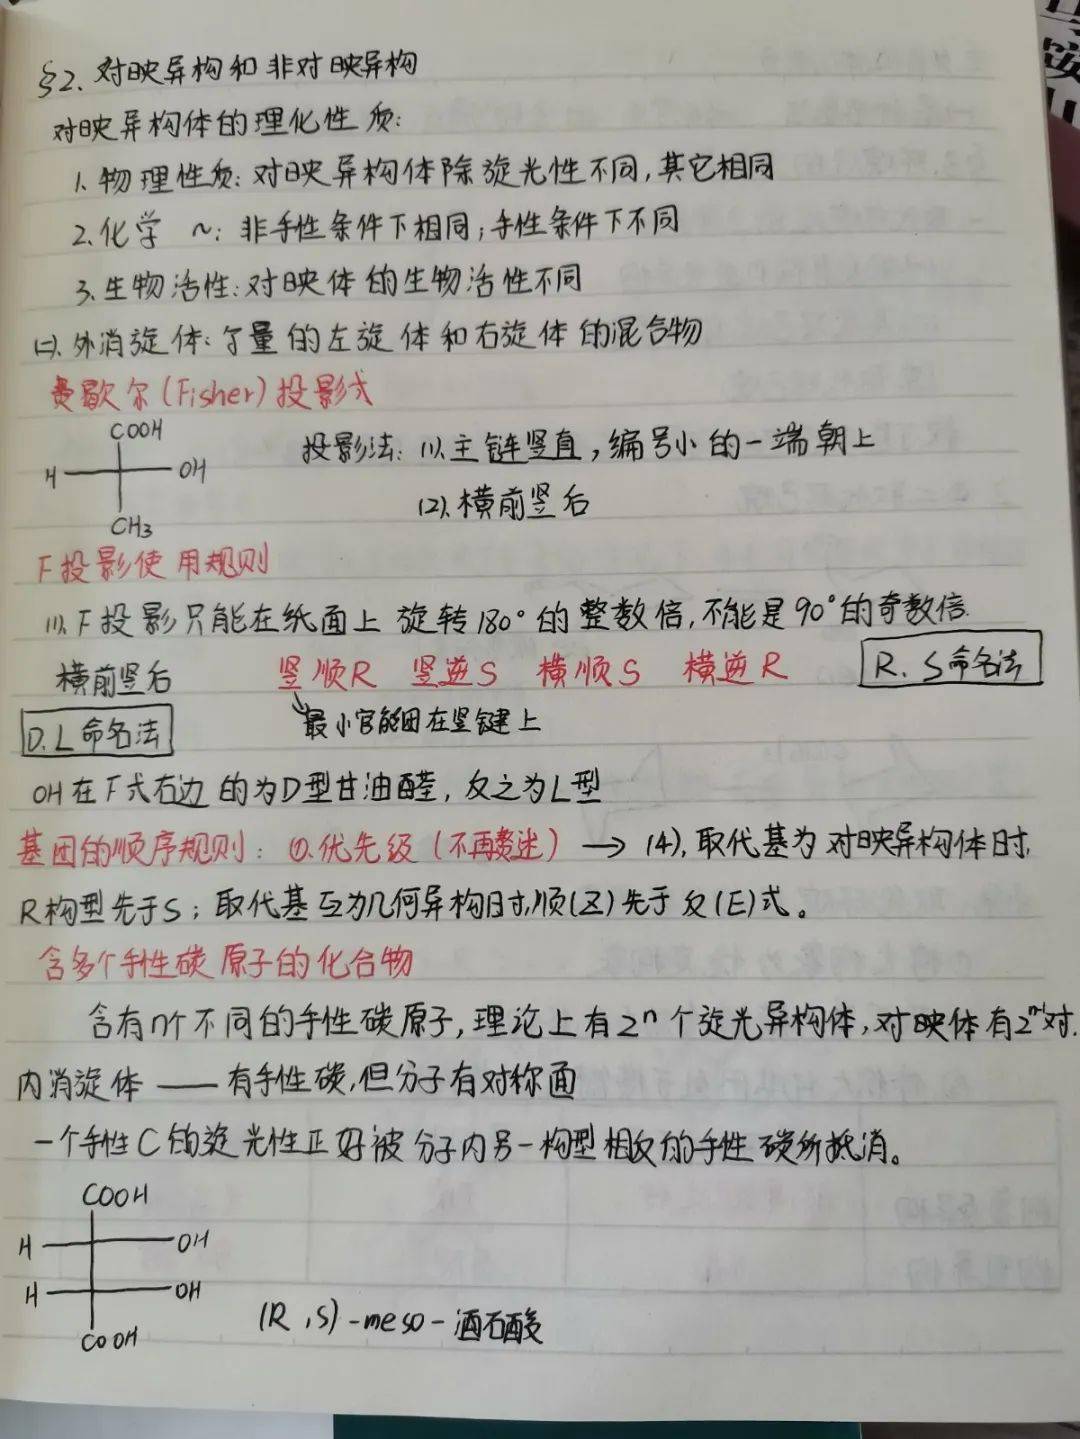 §2. 对映异构和非对映异构
对映异构体的理化性质:
1. 物理性质: 对映异构体除旋光性不同,其它相同
2. 化学 ~: 非手性条件下相同; 手性条件下不同
3. 生物活性: 对映体的生物活性不同
(二). 外消旋体: 等量的左旋体和右旋体的混合物
费歇尔(Fisher)投影式
COOH
H OH
CH3
投影法: (1). 主链竖直,编号小的一端朝上
(2). 横前竖后
F投影使用规则
(1). F投影只能在纸面上旋转180°的整数倍,不能是90°的奇数倍.
横前竖后 竖顺R 竖逆S 横顺S 横逆R R、S命名法
最小官能团在竖键上
D、L命名法
OH在F式右边的为D型甘油醛, 反之为L型
基团的顺序规则: (1). 优先级 (不再赘述) → (4), 取代基为对映异构体时,
R构型先于S; 取代基互为几何异构时,顺(Z)先于反(E)式。
含多个手性碳原子的化合物
含有n个不同的手性碳原子,理论上有2ⁿ个旋光异构体,对映体有2ⁿ⁻¹对.
内消旋体 —— 有手性碳,但分子有对称面
一个手性C的旋光性正好被分子内另一构型相反的手性碳所抵消。
COOH
H OH
H OH
COOH
(R,S)-meso-酒石酸